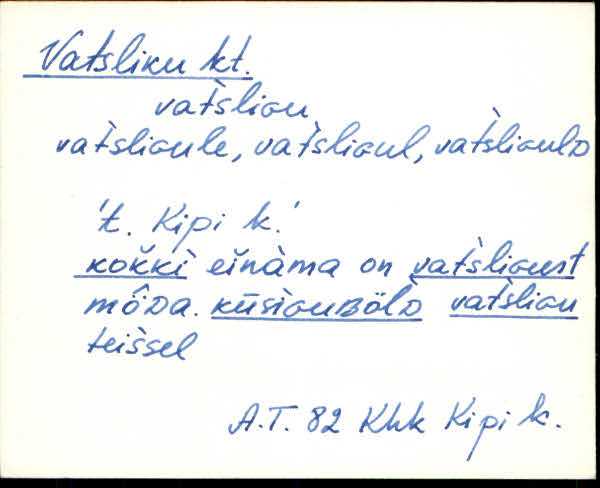 Vatsliku kt.
vat̀sliɢu
vat̀sliɢule, vat̀sliɢul, vat̀sliɢulᴅ
't. Kipi k.'
kok̆kì eĭnàma on vat̀sliɢust
mô̬ᴅa. kūsìɢuʙöl̀ᴅ vat̀sliɢu
teìssel
A.T. 82 Khk Kipi k.